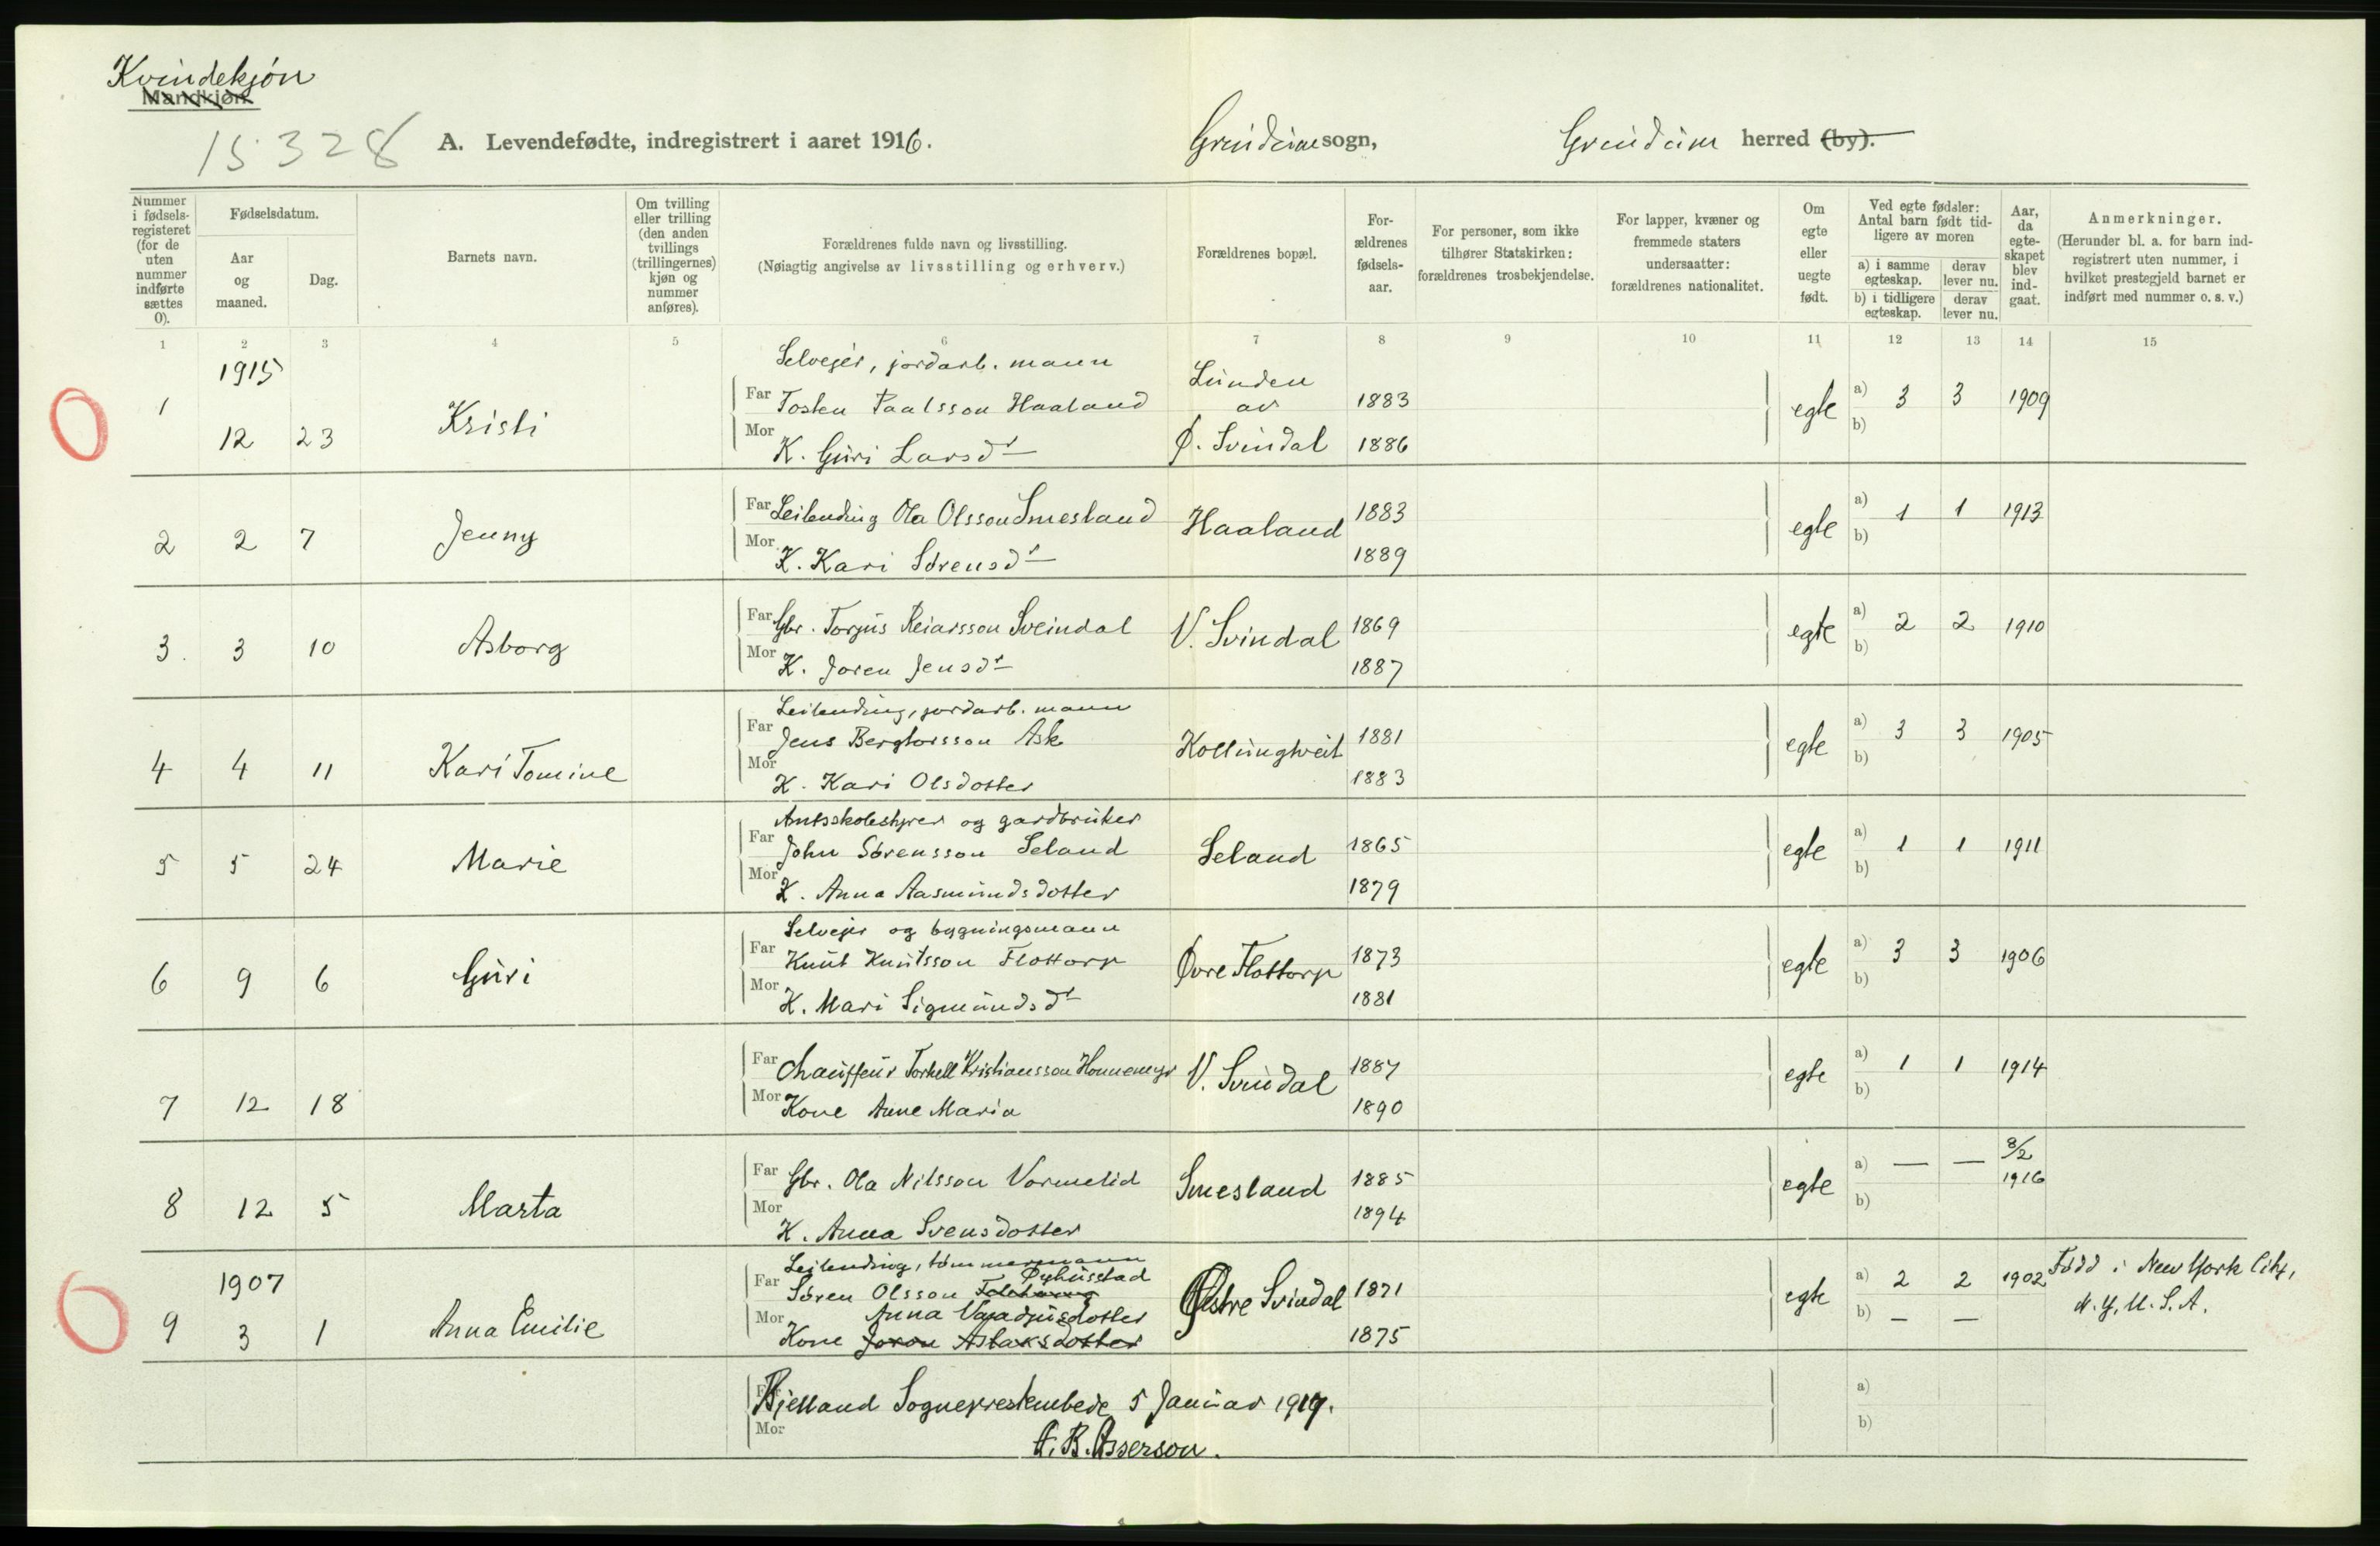 Kvindekjøn
Mandkjøn
15328
A. Levendefødte, indregistrert i aaret 1916.
Grindeim sogn,
Grindeim herred (by).
Nummer i fødsels-registeret (for de uten nummer indførte sættes 0).
Fødselsdatum.
Aar og maaned.
Dag.
Barnets navn.
Om tvilling eller trilling (den anden tvillings (trillingernes) kjøn og nummer anføres).
Forældrenes fulde navn og livsstilling.
(Nøiagtig angivelse av livsstilling og erhverv.)
Forældrenes bopæl.
For-ældrenes fødsels-aar.
For personer, som ikke tilhører Statskirken: forældrenes trosbekjendelse.
For lapper, kvæner og fremmede staters undersaatter: forældrenes nationalitet.
Om egte eller uegte født.
Ved egte fødsler: Antal barn født tid-ligere av moren
a) i samme egteskap.
derav lever nu.
b) i tidligere egteskap.
derav lever nu.
Aar, da egte-skapet blev ind-gaat.
Anmerkninger.
(Herunder bl. a. for barn ind-registrert uten nummer, i hvilket prestegjeld barnet er indført med nummer o. s. v.)
1 2 3 4 5 6 7 8 9 10 11 12 13 14 15
1915
Selveger, jordarb. mann
1 12 23 Kristi
Far Tosten Paalsson Haaland
Lunden av Ø. Svindal
1883
egte a) 3 3 1909
Mor K. Guri Larsdr
1886
b)
2 2 7 Jenny
Far Leilending Ola Olsson Smesland
Haaland
1883
egte a) 1 1 1913
Mor K. Kari Sørensdr
1889
b)
3. 3 10 Asborg
Far Gbr. Torjus Reiarsson Sveindal
V. Svindal
1869
egte a) 2 2 1910
Mor K. Joren Jensdr
1887
b)
Leilending, jordarb. mann
4 4 11 Kari Tomine
Far Jens Bergtorsson Ask
Kollungtveit
1881
egte a) 3 3 1905
Mor K. Kari Olsdotter
1883
b)
Amtsskolestyrer og gardbruker
5 5 24 Marie
Far John Sørensson Seland
Seland
1865
egte a) 1 1 1911
Mor K. Anna Aasmundsdotter
1879
b)
Selvejer og bygningsmann
6 9 6 Guri
Far Knut Knutsson Flottorp
Øvre Flottorp
1873
egte a) 3 3 1906
Mor K. Mari Sigmundsdr
1881
b)
7 12 18
Far Chauffeur Torkell Kristiansson Honnemyr
V. Svindal
1887
egte a) 1 1 1914
Mor Kone Anne Maria
1890
b)
8 12 5 Marta
Far Gbr. Ola Nilsson Vormelid
Smesland
1885
egte a) — — 8/2 1916
Mor K. Anna Svensdotter
1894
b)
1907
Leilending, tømmermann
Øyhusstad
9 3 1 Anna Emilie
Far Søren Olsson
Østre Svindal
1871
egte a) 2 2 1902
Født i New York City,
N. Y, U. S. A.
Anna
Mor Kone Joron Aslaksdotter
1875
b) — —
Bjelland Sogneprestembede 5 Januar 1917.
Far
Mor
A. B. Asserson.
a)
b)